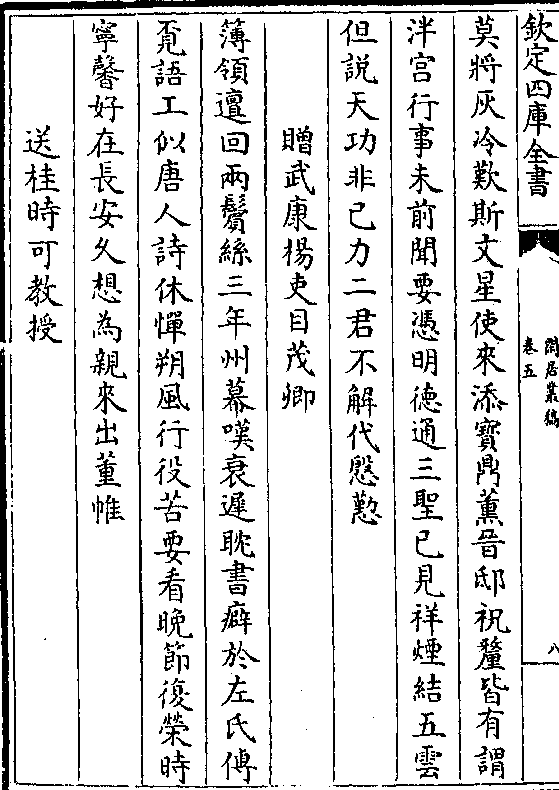 欽定四庫全書
閒居叢稿
卷五
八
莫將灰冷歎斯文星使來添寶鼎薰晋邸祝釐皆有謂
泮宫行事未前聞要憑明徳通三聖已見祥煙結五雲
但説天功非已力二君不解代慇懃
贈武康楊吏目茂卿
簿領邅回兩鬢絲三年州幕嘆衰遲耽書癖於左氏傳
覔語工似唐人詩休憚朔風行役苦要看晚節復榮時
寧馨好在長安久想為親來出董帷
送桂時可教授